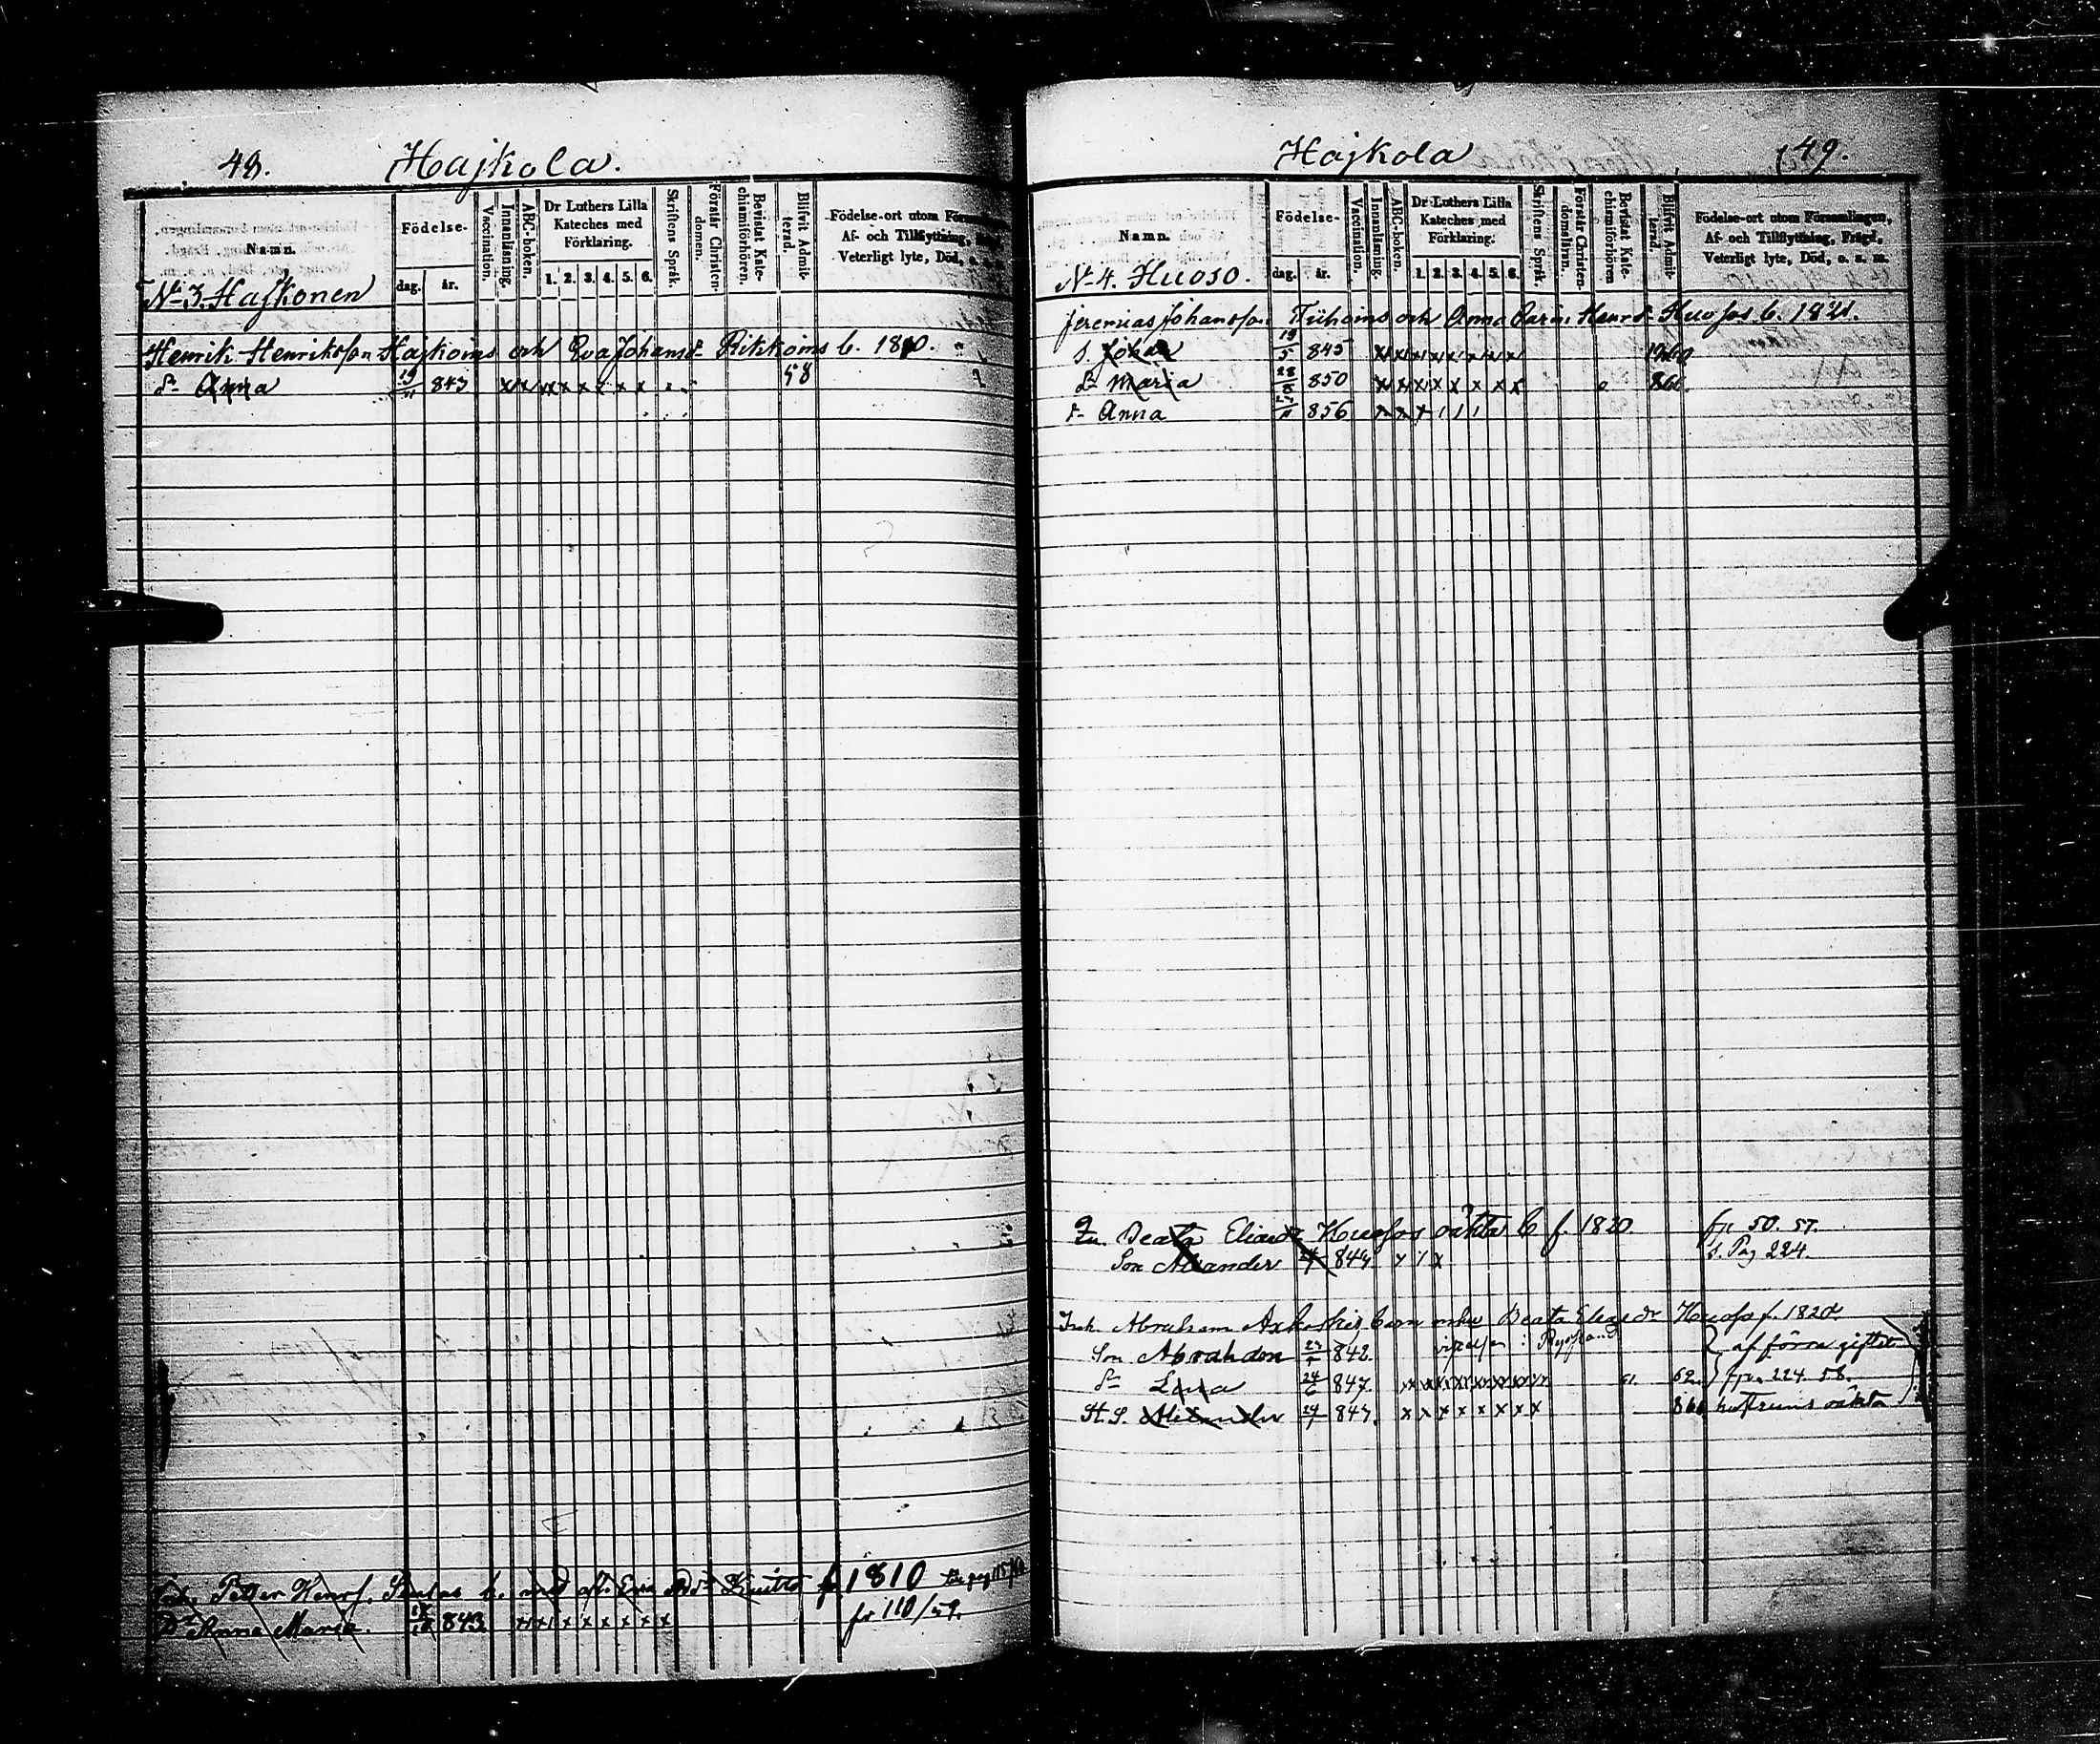 48. Hajkola.
Namn.
Födelse-
dag. år.
Vaccination.
Innanläsning.
ABC-boken.
Dr Luthers Lilla
Kateches med
Förklaring.
1. 2. 3. 4. 5. 6.
Skriftens Språk.
Förstår Christen-
domen.
Bevistat Kate-
chismiförhören.
Blifvit Admit-
terad.
Födelse-ort utom
Af- och Tillflyttning,
Veterligt lyte, Död, o. s. m.
No 3. Hajkonen
Henrik Henriksson Hajkoins och Eva Johansdr Rikkoins b. 1810.
dr Anna 19/11 843 x x x x x x x x 58
Petter Henrs. b. med f. 1810
Dr Anna Maria. 843 x x x x x x x x fr 110/59.
Hajkola 49.
Namn.
Födelse-
dag. år.
Vaccination.
Innanläsning.
ABC-boken.
Dr Luthers Lilla
Kateches med
Förklaring.
1. 2. 3. 4. 5. 6.
Skriftens Språk.
Förstår Christen-
domsläran.
Bevistat Kate-
chismiförhören
Blifvit Admit-
terad.
Födelse-ort utom Församlingen,
Af- och Tillflyttning, Frägd,
Veterligt lyte, Död, o. s. m.
No 4. Huoso.
Jeremias Johansson Tiihoins och Anna Carin Henrdr Huosos b. 1821.
s. Johan 19/5 845 x x x x x x x x
dr Maria 28/8 850 x x x x x x x x 866.
dr Anna /11 856 x x x
Beata Eliaedr Huosos oäkta b f. 1820. fr. 50. 57.
Son Alexander 24/7 847. x x s. Pag 224.
Inh. Abraham barn enka Beata Eliaedr Huoso f. 1820.
Son Abraham 842. vistas i Ryssland af förra giftet
dr Lena 24/6 847. x x x x x x x x 62. fr. 224. 58.
St. S. Alexander 24/7 847. x x x x x x x x 866 hustruns oäkta